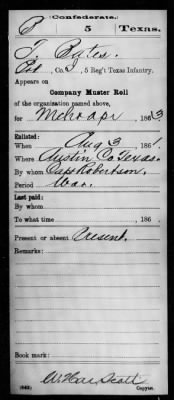 (Confederate.)
B 5 Texas.
T. Bytes.
Pvt, Co. D, 5 Reg't Texas Infantry.
Appears on
Company Muster Roll
of the organization named above,
for Mch & Apr, 1863
Enlisted:
When Aug 3, 1861.
Where Austin Co Texas.
By whom Capt Robertson.
Period War.
Last paid:
By whom
To what time , 186 .
Present or absent Present.
Remarks:
Book mark:
(642) Copyist.